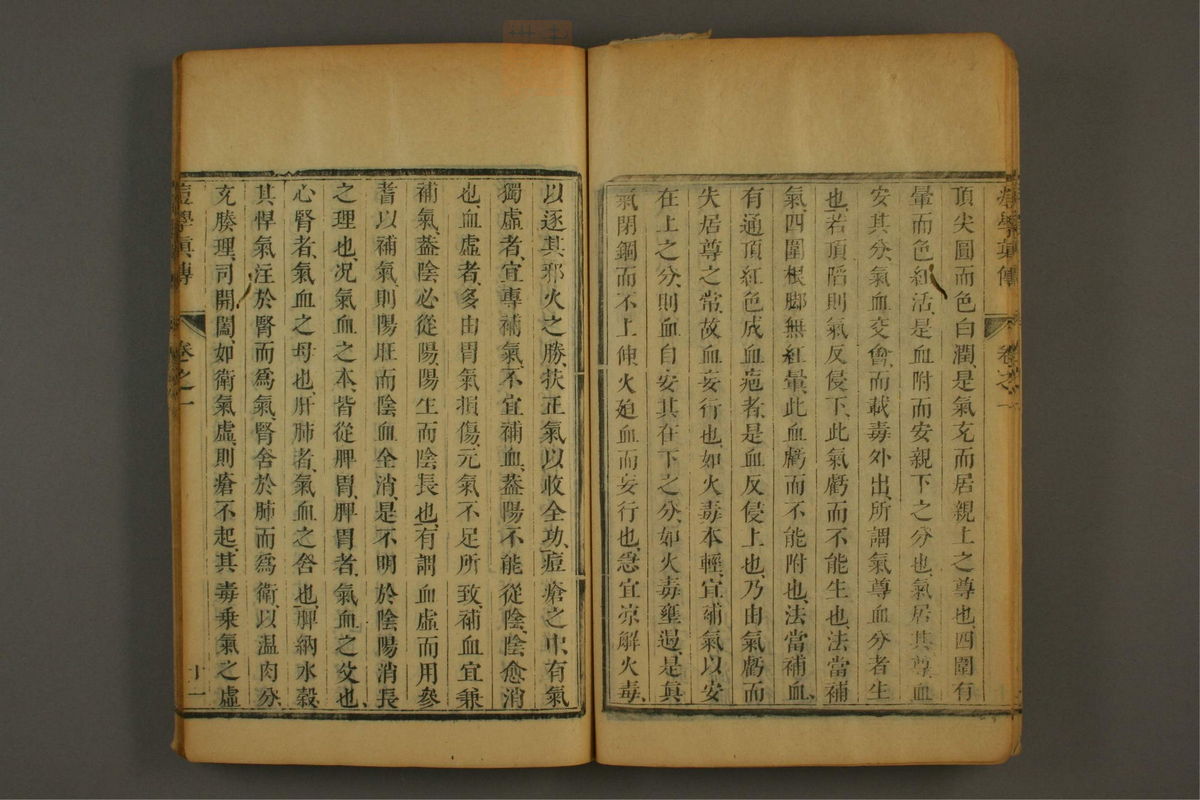 痘學真傳 卷之一
頂尖圓而色白潤是氣充而居親上之尊也、四圍有
暈而色紅活、是血附而安親下之分也、氣居其尊、血
安其分、氣血交會、而載毒外出、所謂氣尊血分者生
也、若頂䧟則氣反侵下、此氣虧而不能生也、法當補
氣、四圍根脚無紅暈、此血虧而不能附也、法當補血、
有通頂紅色成血疱者、是血反侵上也、乃由氣虧而
失居尊之常、故血妄行也、如火毒本輕、宜補氣以安
在上之分、則血自安其在下之分、如火毒壅遏、是眞
氣閉錮而不上伸、火廹血而妄行也、急宜凉解火毒、
以逐其邪火之勝、扶正氣以收全功、痘瘡之中、有氣
獨虛者、宜專補氣、不宜補血、葢陽不能從陰、陰愈消
也、血虛者、多由胃氣損傷、元氣不足所致、補血宜兼
補氣、葢陰必從陽、陽生而陰長也、有謂血虛而用參
耆以補氣、則陽旺而陰血全消、是不明於陰陽消長
之理也、况氣血之本、皆從脾胃、脾胃者、氣血之父也、
心腎者、氣血之母也、肝肺者、氣血之舍也、脾納水穀
其悍氣注於腎而爲氣、腎舍於肺而爲衛、以溫肉分、
充腠理、司開闔、如衛氣虛、則瘡不起、其毒乘氣之虛
痘學眞傳 卷之一 十一